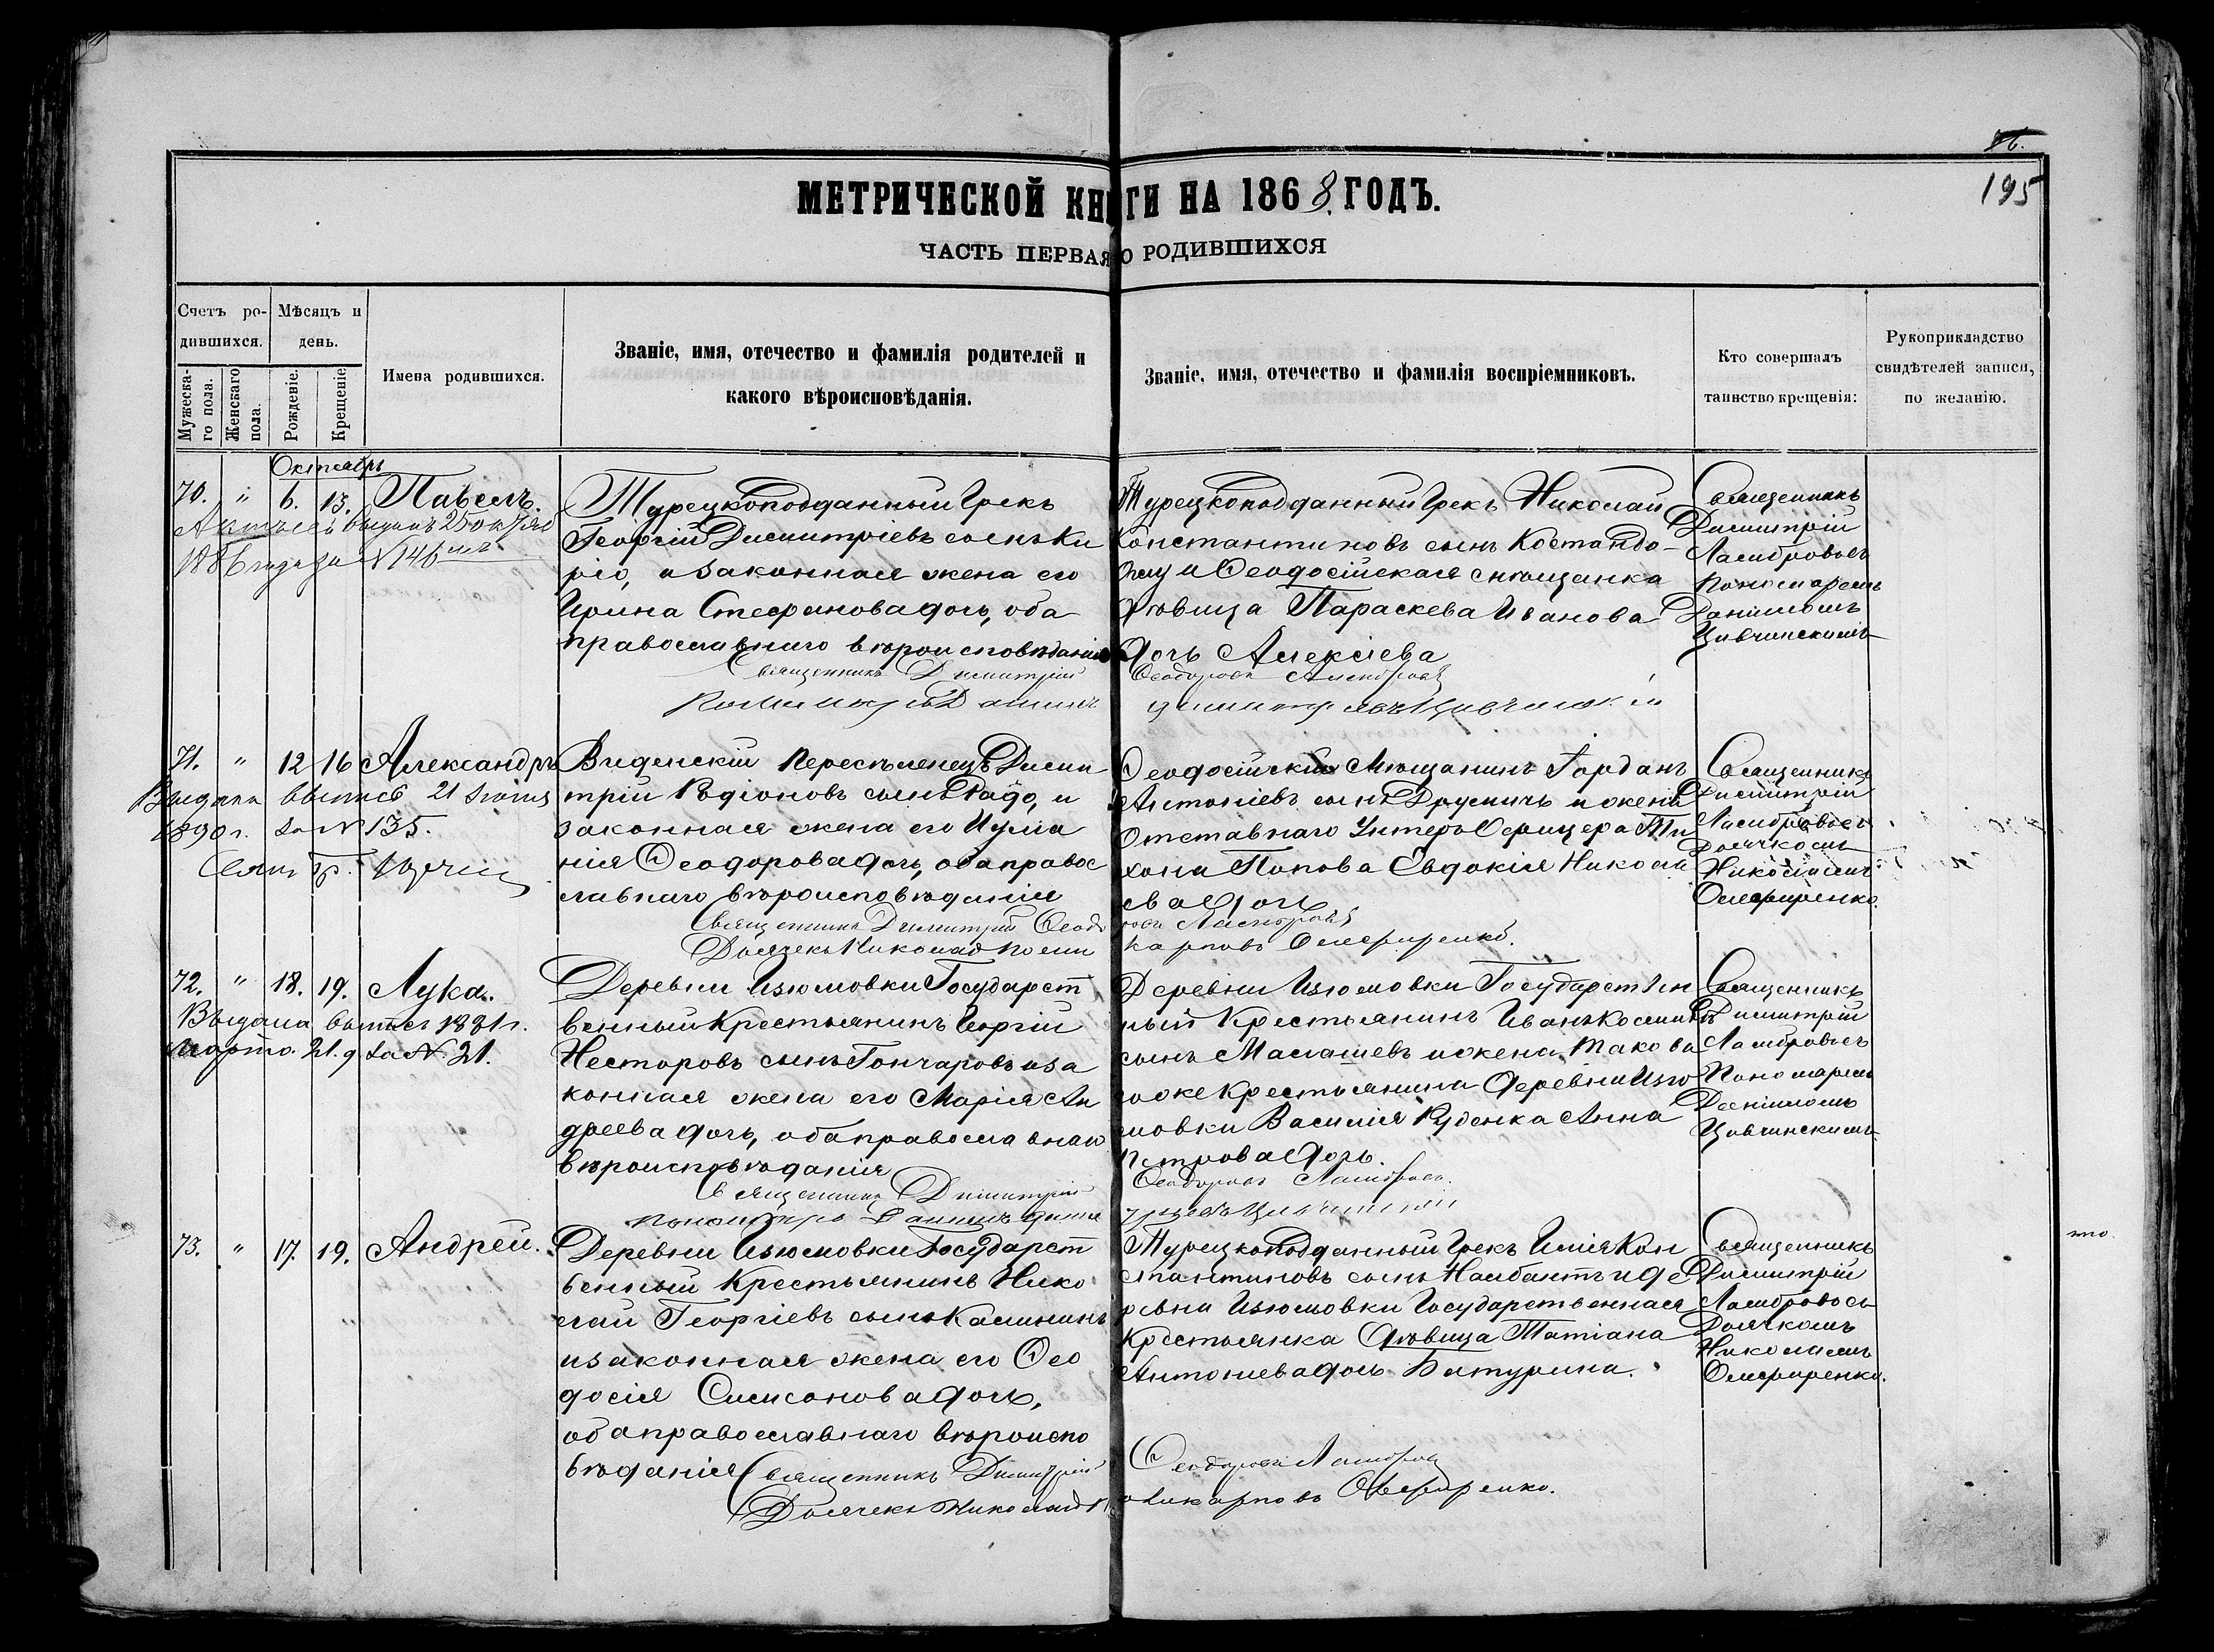 96.
195
МЕТРИЧЕСКОЙ КНИГИ НА 1868 ГОДЪ.
ЧАСТЬ ПЕРВАЯ О РОДИВШИХСЯ
Счетъ ро-
дившихся.
Мѣсяцъ и
день.
Мужеска-
го пола.
Женскаго
пола.
Рожденіе.
Крещеніе
Имена родившихся.
Званіе, имя, отечество и фамилія родителей и
какого вѣроисповѣданія.
Званіе, имя, отечество и фамилія воспріемниковъ.
Кто совершалъ
таинство крещенія:
Рукоприкладство
свидѣтелей записи,
по желанію.
Октябрь
70. " 6. 13. Павелъ.
1886 года за № 146
Турецкоподданный Грекъ
Георгій Димитріевъ сынъ Ки
ріо, и законная жена его
Ирина Стефанова дочь, оба
православнаго вѣроисповѣданія
Священникъ Димитрій
Турецкоподданный Грекъ Николай
Константиновъ сынъ Костандо-
и Ѳеодосійская мѣщанка
дѣвица Параскева Иванова
дочь Алексіева
Священникъ
Димитрій
Ламбровъ съ
Пономаремъ
Даніиломъ
Цивчинскимъ
71. " 12 16 Александръ
Выдана выпись 21 Іюня
1890 г. за № 135.
Видинскій Переселенецъ Дими-
трій Родіоновъ сынъ Радо, и
законная жена его Иулиа
нія Ѳеодорова дочь, оба правос
лавнаго вѣроисповѣданія
Священникъ Димитрій Ѳеодо
Дьячекъ Николай Поли
Ѳеодосійскій Мѣщанинъ Іорданъ
Антоніевъ сынъ и жена
Отставнаго Унтеръ Офицера Ти
хона Попова Евдокія Никола
ева дочь
ровъ Ламбровъ
карповъ Олефиренко.
Священникъ
Димитрій
Ламбровъ съ
Дьячкомъ
Николаемъ
Олефиренко.
72. " 18. 19. Лука.
Выдана выпись 1881 г.
Марта 21. д за № 21.
Деревни Изюмовки Государст
венный Крестьянинъ Георгій
Несторовъ сынъ Гончаровъ и за
конная жена его Марія Ан
дреева дочь, оба православнаго
вѣроисповѣданія
Священникъ Димитрій
Пономарь Даніилъ Дими
Деревни Изюмовки Государствен
ный Крестьянинъ Иванъ Косминъ
сынъ Маслашевъ и жена Такова
гоже Крестьянина деревни Изю
мовки Василія Руденка Анна
Петрова дочь.
Ѳеодоровъ Ламбровъ.
тріевъ Цивчинскій
Священникъ
Димитрій
Ламбровъ съ
Пономаремъ
Даніиломъ
Цивчинскимъ
73. " 17. 19. Андрей.
Деревни Изюмовки Государст
венный Крестьянинъ Нико
лай Георгіевъ сынъ Калининъ
и законная жена его Ѳео
досія Симсонова дочь,
оба православнаго вѣроиспо
вѣданія Священникъ Димитрій
Дьячекъ Николай П
Турецкоподданный Грекъ Илія Кон
стантиновъ сынъ Налбантъ и де
ревни Изюмовки Государственная
Крестьянка дѣвица Татіана
Антоніева дочь Батурина.
Ѳеодоровъ Ламбровъ
оликарповъ Олефиренко.
Священникъ
Димитрій
Ламбровъ съ
Дьячкомъ
Николаемъ
Олефиренко.